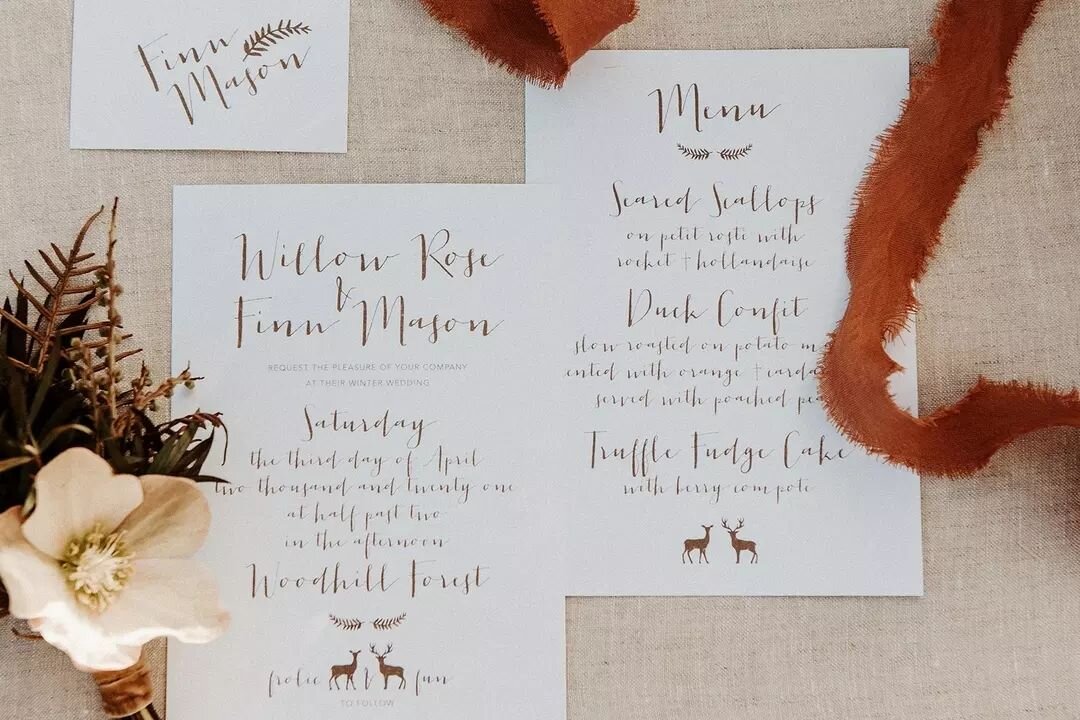 Finn
Mason
Willow Rose
&
Finn Mason
REQUEST THE PLEASURE OF YOUR COMPANY
AT THEIR WINTER WEDDING
Saturday
the third day of April
two thousand and twenty one
at half past two
in the afternoon
Woodhill Forest
frolic & fun
TO FOLLOW
Menu
Seared Scallops
on petit rosti with
rocket + hollandaise
Duck Confit
slow roasted on potato
with orange +
served with poached
Truffle Fudge Cake
with berry compote